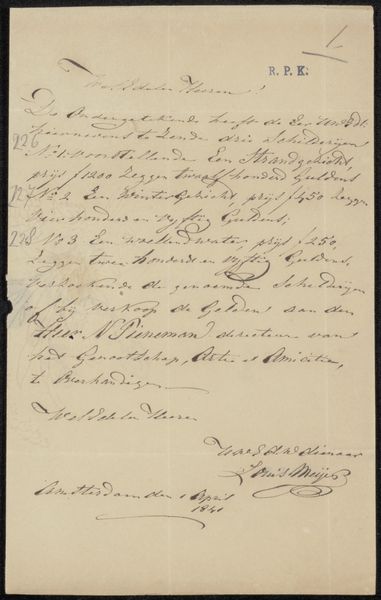 1
R. P. K.
Weledele Heeren!
De Ondergetekende heeft de Eer UwEdl.
hiernevens te zende drie Schilderijen
226 No 1. voorstellende Een Strandgezicht,
prijs ƒ 1200 Zeggen twaalf honderd Guldens
227 No 2 Een Wintergezicht, prijs ƒ 450 Zeggen
vierhonderd en vyftig Guldens;
228 No 3 Een woelend water, prijs ƒ 250,
Zeggen twee honderd en vyftig Guldens,
verzoekende de genoemde Schilderijen
of bij verkoop de Gelden aan den
Heer N Pieneman directeur van
het Genootschap, Artie et Amicitie,
te Overhandigen
Weledele Heeren
UwEd. dw dienaar
Louis Meijer
Amsterdam den 1 April
1841